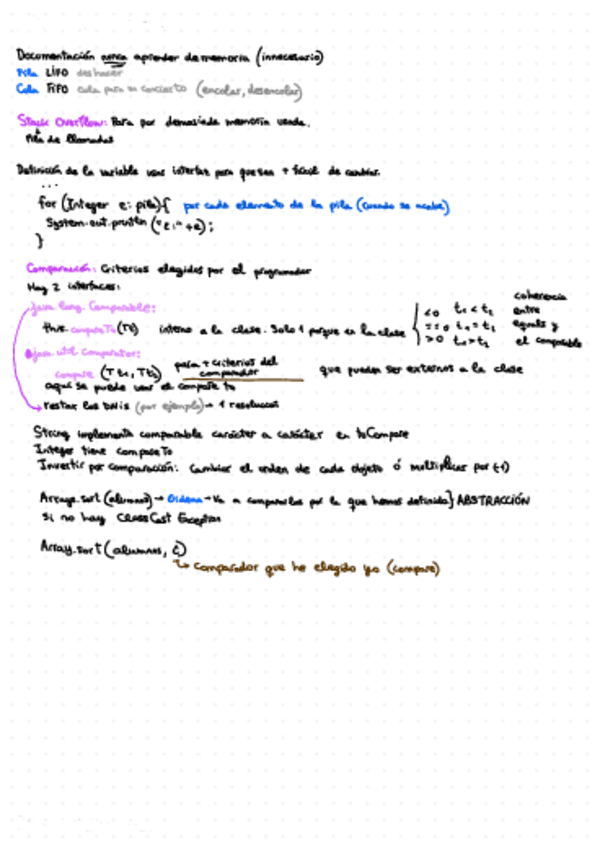 Documentación nunca aprender de memoria (innecesario)
Pila LIFO deshacer
Cola FIFO cola para un concierto (encolar, desencolar)
Stack Overflow: Para por demasiada memoria usada.
Pila de llamadas
Definición de la variable usar interfaz para que sea + fácil de cambiar.
...
for (Integer e: pila){ por cada elemento de la pila (cuando se acabe)
System.out.println ("e:" +e);
}
Comparación: Criterios elegidos por el programador
Hay 2 interfaces:
java.lang. Comparable:
this. compareTo (T2) interno a la clase. Solo 1 porque en la clase { <0 t1 < t2 ==0 t1 = t2 >0 t1 > t2 coherencia entre equals y el comparable
java.util comparator:
compare (T t1, T t2) para + criterios del comparador que pueden ser externos a la clase
aquí se puede usar el compare to
restar los DNIs (por ejemplo) → 1 resolución
String implementa comparable carácter a carácter en toCompare
Integer tiene compareTo
Invertir por comparación: Cambiar el orden de cada objeto ó multiplicar por (-1)
Arrays.sort (alumnos) → Ordena → Va a compararlos por la que hemos definido} ABSTRACCIÓN
Si no hay ClassCast Exception
Array.sort (alumnos, c)
↳ comparador que he elegido yo (compare)